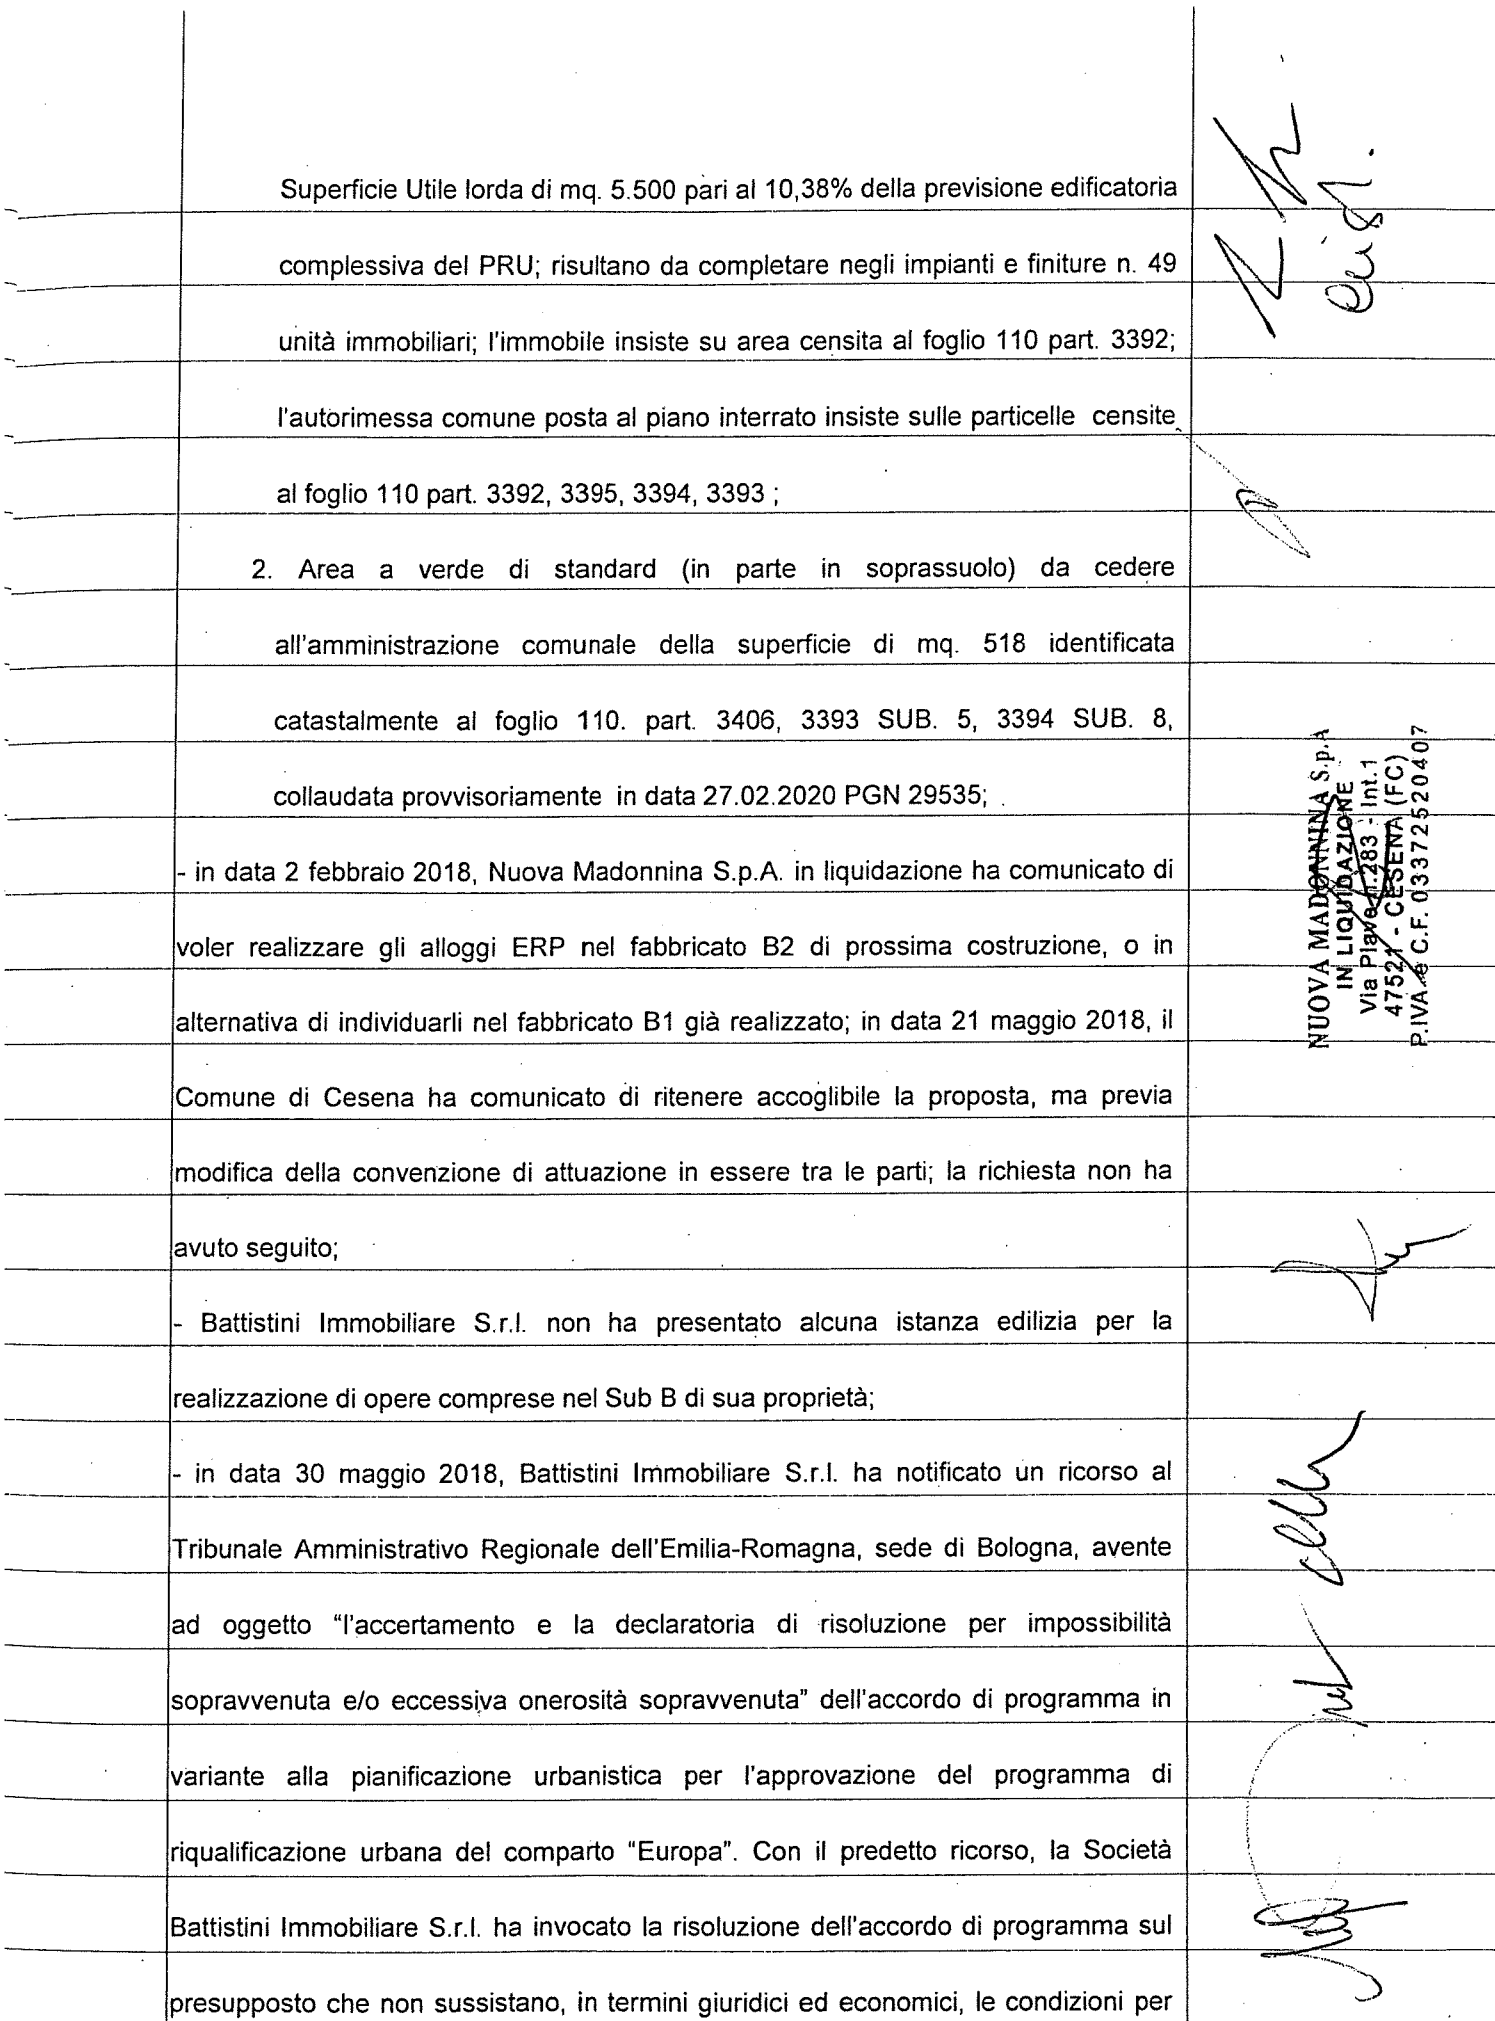 Superficie Utile lorda di mq. 5.500 pari al 10,38% della previsione edificatoria
complessiva del PRU; risultano da completare negli impianti e finiture n. 49
unità immobiliari; l'immobile insiste su area censita al foglio 110 part. 3392;
l'autorimessa comune posta al piano interrato insiste sulle particelle censite
al foglio 110 part. 3392, 3395, 3394, 3393 ;
2. Area a verde di standard (in parte in soprassuolo) da cedere
all'amministrazione comunale della superficie di mq. 518 identificata
catastalmente al foglio 110. part. 3406, 3393 SUB. 5, 3394 SUB. 8,
collaudata provvisoriamente in data 27.02.2020 PGN 29535;
- in data 2 febbraio 2018, Nuova Madonnina S.p.A. in liquidazione ha comunicato di
voler realizzare gli alloggi ERP nel fabbricato B2 di prossima costruzione, o in
alternativa di individuarli nel fabbricato B1 già realizzato; in data 21 maggio 2018, il
Comune di Cesena ha comunicato di ritenere accoglibile la proposta, ma previa
modifica della convenzione di attuazione in essere tra le parti; la richiesta non ha
avuto seguito;
- Battistini Immobiliare S.r.l. non ha presentato alcuna istanza edilizia per la
realizzazione di opere comprese nel Sub B di sua proprietà;
- in data 30 maggio 2018, Battistini Immobiliare S.r.l. ha notificato un ricorso al
Tribunale Amministrativo Regionale dell'Emilia-Romagna, sede di Bologna, avente
ad oggetto “l'accertamento e la declaratoria di risoluzione per impossibilità
sopravvenuta e/o eccessiva onerosità sopravvenuta” dell'accordo di programma in
variante alla pianificazione urbanistica per l'approvazione del programma di
riqualificazione urbana del comparto “Europa”. Con il predetto ricorso, la Società
Battistini Immobiliare S.r.l. ha invocato la risoluzione dell'accordo di programma sul
presupposto che non sussistano, in termini giuridici ed economici, le condizioni per
NUOVA MADONNINA S.p.A
IN LIQUIDAZIONE
Via Piave n.283 - Int.1
47521 - CESENA (FC)
P.IVA e C.F. 03372520407